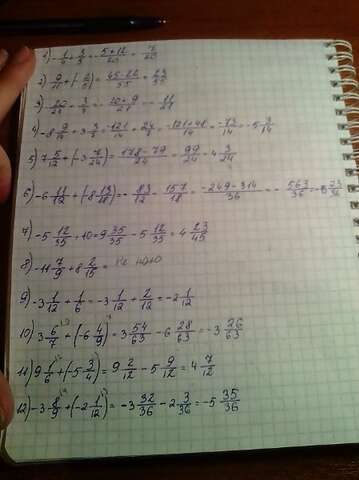 1) -1/4 + 3/5 = -5+12/20 = 7/20
2) 9/11 + (-2/5) = 45-22/55 = 23/55
4) -8 9/14 + 3 3/7 = -121/14 + 24/7 = -121+48/14 = -73/14 = -5 3/14
5) 7 5/12 + (-3 7/24) = 178-79/24 = 99/24 = 4 3/24
6) -6 11/12 + (-8 13/18) = -83/12 - 157/18 = -249-314/36 = -563/36 =
7) -5 12/35 + 10 = 9 35/35 - 5 12/35 = 4 23/45
8) -11 7/9 + 8 2/15 = не надо
9) -3 1/12 + 1/6 = -3 1/12 + 2/12 = -2 1/12
10) 3 6/7 + (-6 4/9) = 3 54/63 - 6 28/63 = -3 26/63
11) 9 1/6 + (-5 3/4) = 9 2/12 - 5 9/12 = 4 7/12
12) -3 8/9 + (-2 1/12) = -3 32/36 - 2 3/36 = -5 35/36